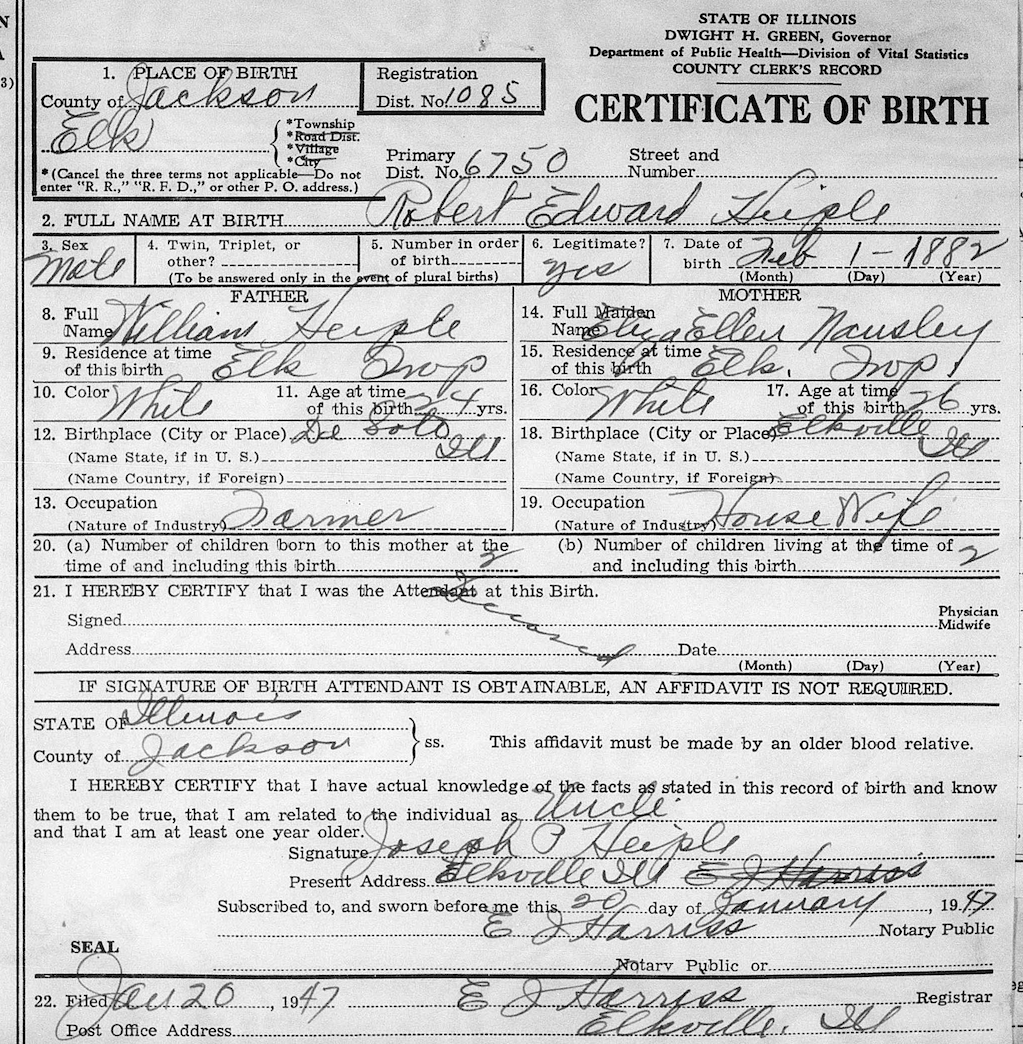 STATE OF ILLINOIS
DWIGHT H. GREEN, Governor
Department of Public Health—Division of Vital Statistics
COUNTY CLERK'S RECORD
CERTIFICATE OF BIRTH
1. PLACE OF BIRTH
County of Jackson
Registration
Dist. No. 1085
Elk
*Township
*Road Dist.
*Village
*City
*(Cancel the three terms not applicable—Do not
enter "R. R.," "R. F. D.," or other P. O. address.)
Primary
Dist. No. 6750
Street and
Number
2. FULL NAME AT BIRTH Robert Edward Heiple
3. Sex Male
4. Twin, Triplet, or
other?
5. Number in order
of birth
(To be answered only in the event of plural births)
6. Legitimate? yes
7. Date of
birth Feb 1-1882
(Month) (Day) (Year)
FATHER
8. Full
Name William Heiple
9. Residence at time
of this birth Elk Twp
10. Color White
11. Age at time
of this birth 24 yrs.
12. Birthplace (City or Place) De Soto
(Name State, if in U. S.) Ill
(Name Country, if Foreign)
13. Occupation
(Nature of Industry) Farmer
MOTHER
14. Full Maiden
Name Eliza Ellen
15. Residence at time
of this birth Elk. Twp.
16. Color White
17. Age at time
of this birth 26 yrs.
18. Birthplace (City or Place) Elkville
(Name State, if in U. S.) Ill
(Name Country, if Foreign)
19. Occupation
(Nature of Industry) House Wife
20. (a) Number of children born to this mother at the
time of and including this birth 2
(b) Number of children living at the time of
and including this birth 2
21. I HEREBY CERTIFY that I was the Attendant at this Birth.
Deceased
Signed
Physician
Midwife
Address Date
(Month) (Day) (Year)
IF SIGNATURE OF BIRTH ATTENDANT IS OBTAINABLE, AN AFFIDAVIT IS NOT REQUIRED.
STATE OF Illinois
County of Jackson
ss. This affidavit must be made by an older blood relative.
I HEREBY CERTIFY that I have actual knowledge of the facts as stated in this record of birth and know
them to be true, that I am related to the individual as Uncle
and that I am at least one year older.
Signature Joseph P Heiple
Present Address Elkville Ill E J Harriss
Subscribed to, and sworn before me this 20 day of January, 1947
E J Harriss Notary Public
SEAL
Notary Public or
22. Filed Jan 20, 1947 E J Harriss Registrar
Post Office Address Elkville, Ill